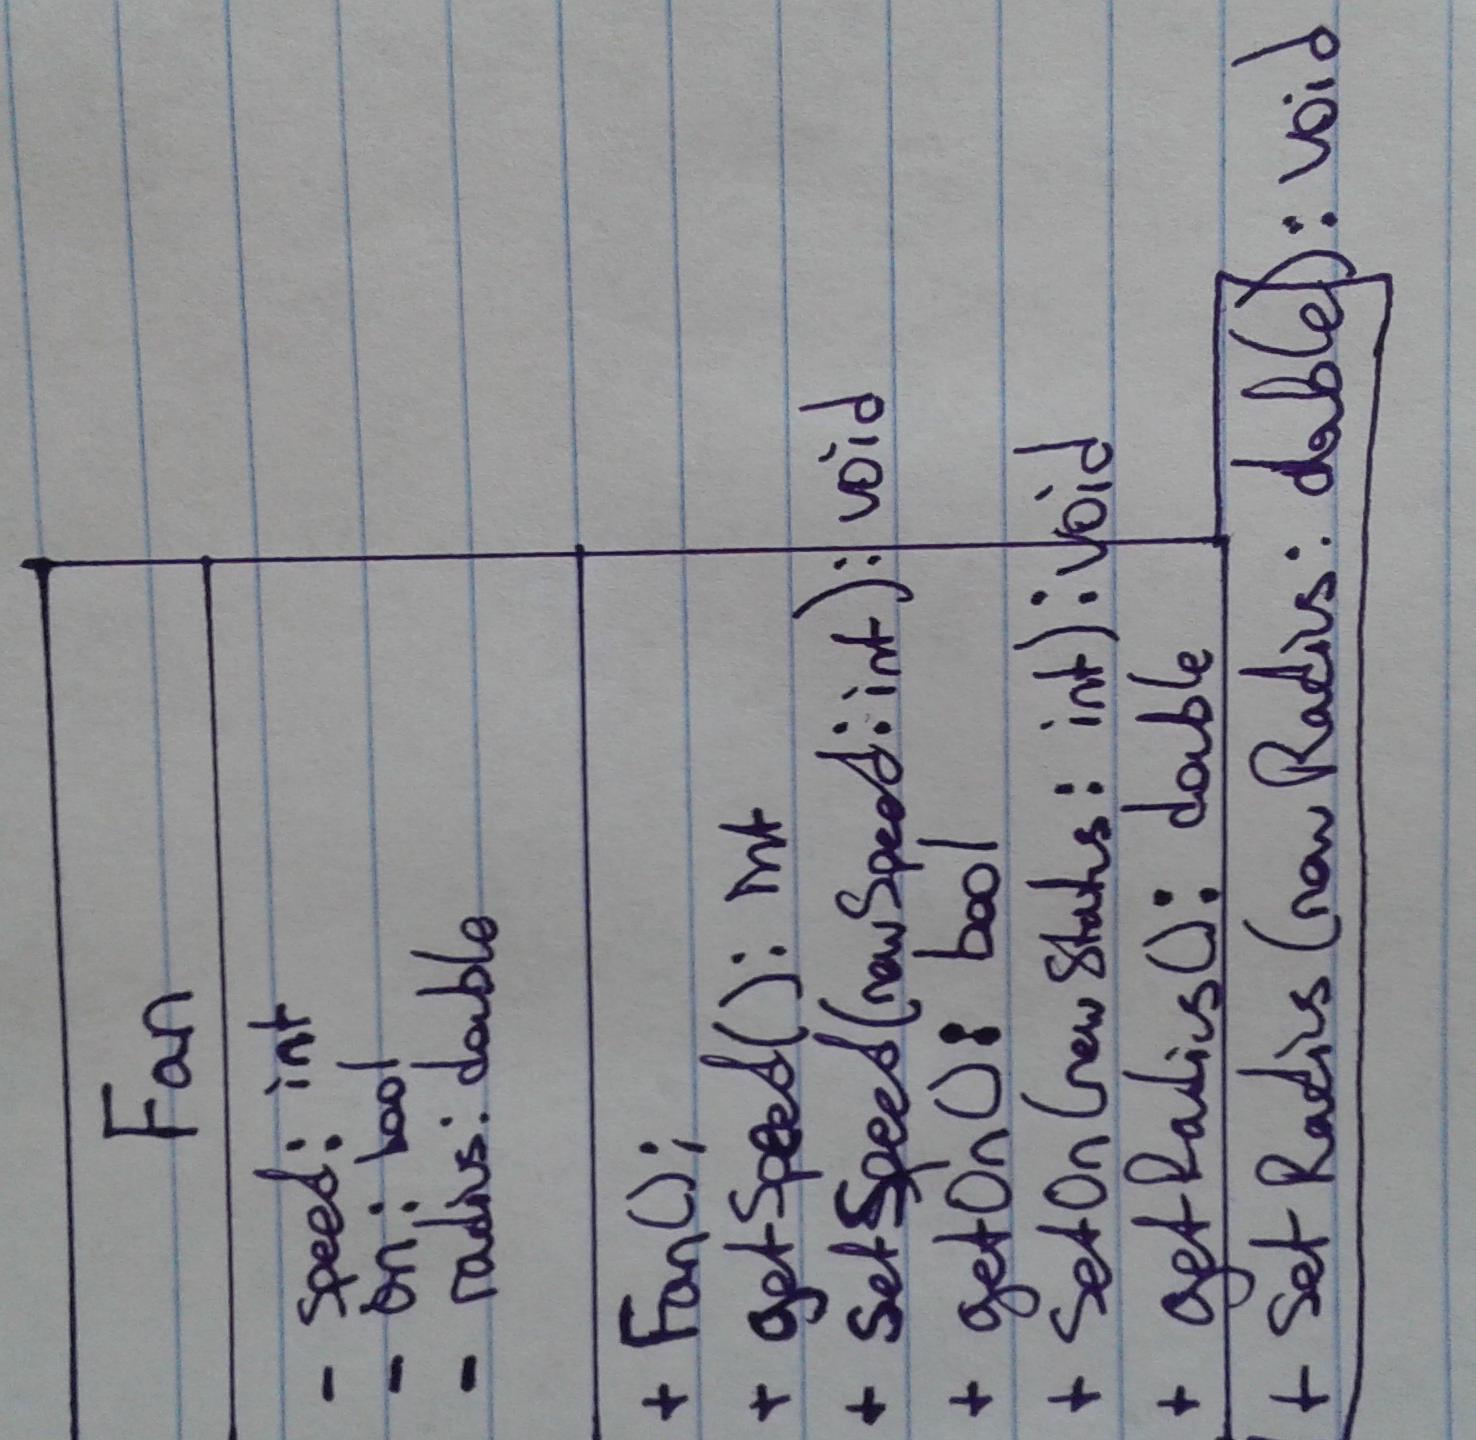 Fan
- speed: int
- on: bool
- radius: double
+ Fan();
+ getSpeed(): int
+ setSpeed(newSpeed: int): void
+ getOn(): bool
+ setOn(newStatus: int): void
+ getRadius(): double
+ setRadius(newRadius: double): void